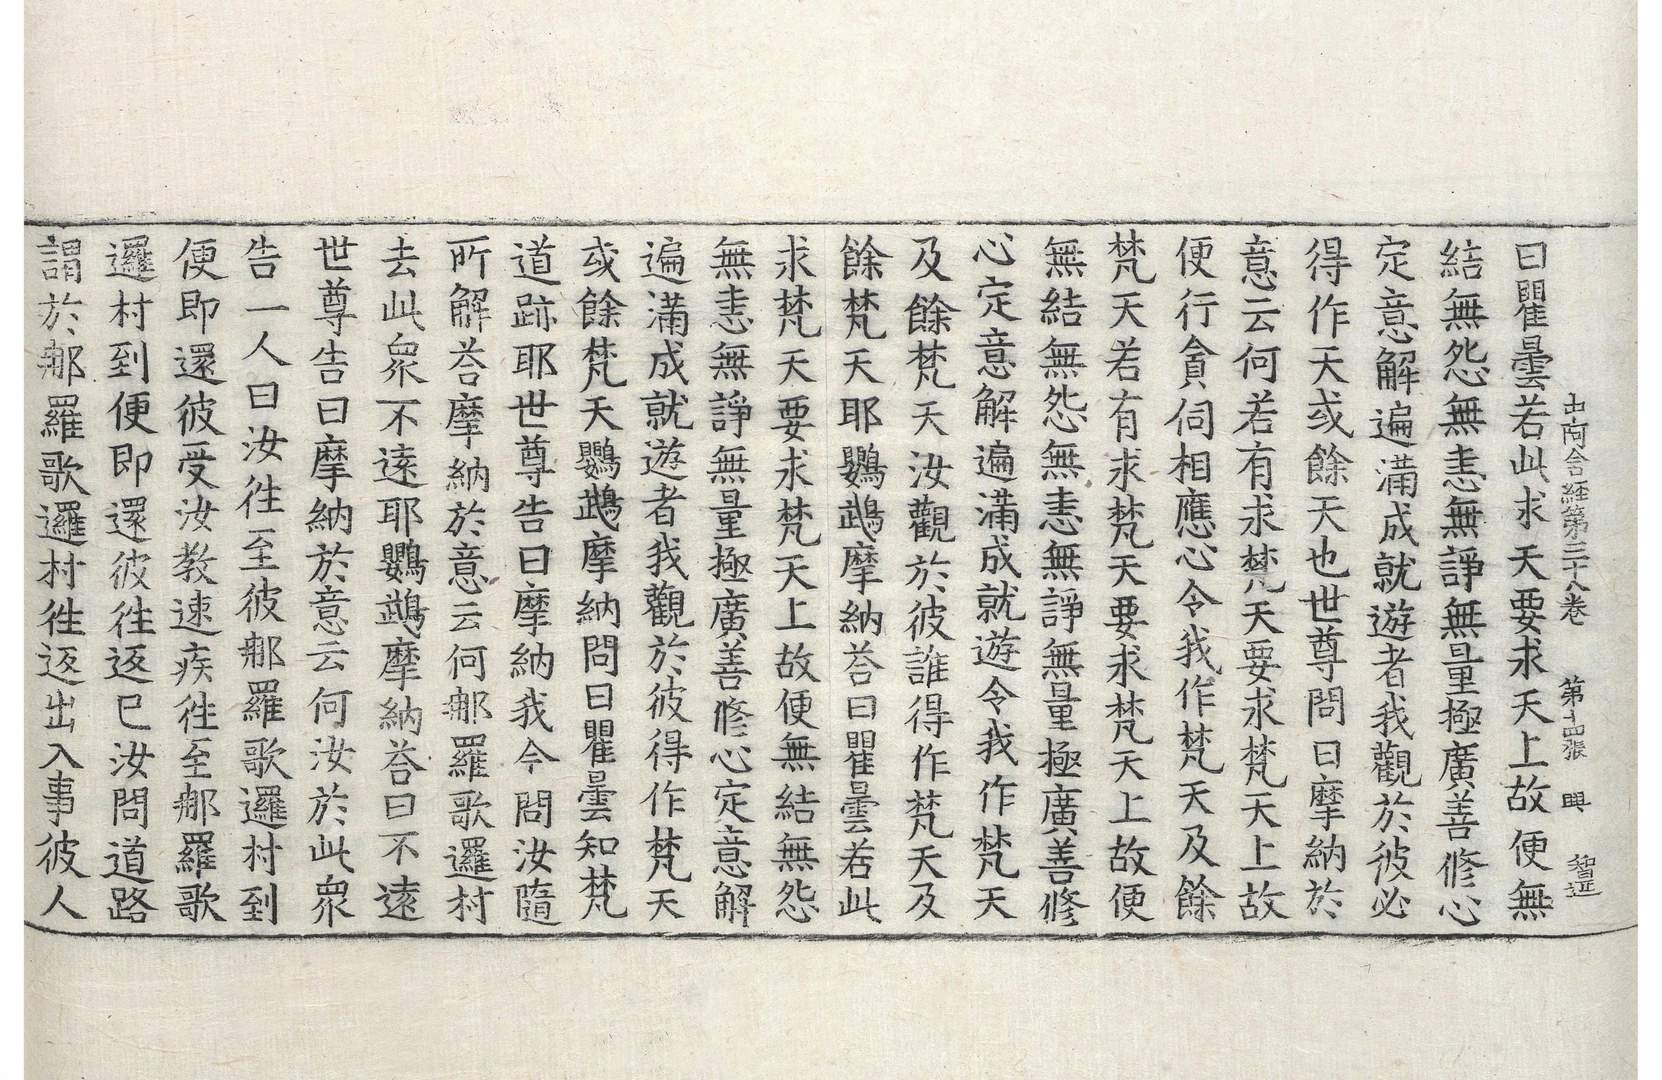 中阿含経第三十八卷　第十四張　興　智逈
曰瞿曇若此求天要求天上故便無
結無怨無恚無諍無量極廣善修心
定意解遍滿成就遊者我觀於彼必
得作天或餘天也世尊問曰摩納於
意云何若有求梵天要求梵天上故
便行貪伺相應心令我作梵天及餘
梵天若有求梵天要求梵天上故便
無結無怨無恚無諍無量極廣善修
心定意解遍滿成就遊令我作梵天
及餘梵天汝觀於彼誰得作梵天及
餘梵天耶鸚鵡摩納荅曰瞿曇若此
求梵天要求梵天上故便無結無怨
無恚無諍無量極廣善修心定意解
遍滿成就遊者我觀於彼得作梵天
或餘梵天鸚鵡摩納問曰瞿曇知梵
道跡耶世尊告曰摩納我今問汝隨
所解荅摩納於意云何郍羅歌邏村
去此衆不遠耶鸚鵡摩納荅曰不遠
世尊告曰摩納於意云何汝於此衆
告一人曰汝徃至彼郍羅歌邏村到
便即還彼受汝教速疾徃至郍羅歌
邏村到便即還彼徃返已汝問道路
謂於郍羅歌邏村徃返出入事彼人